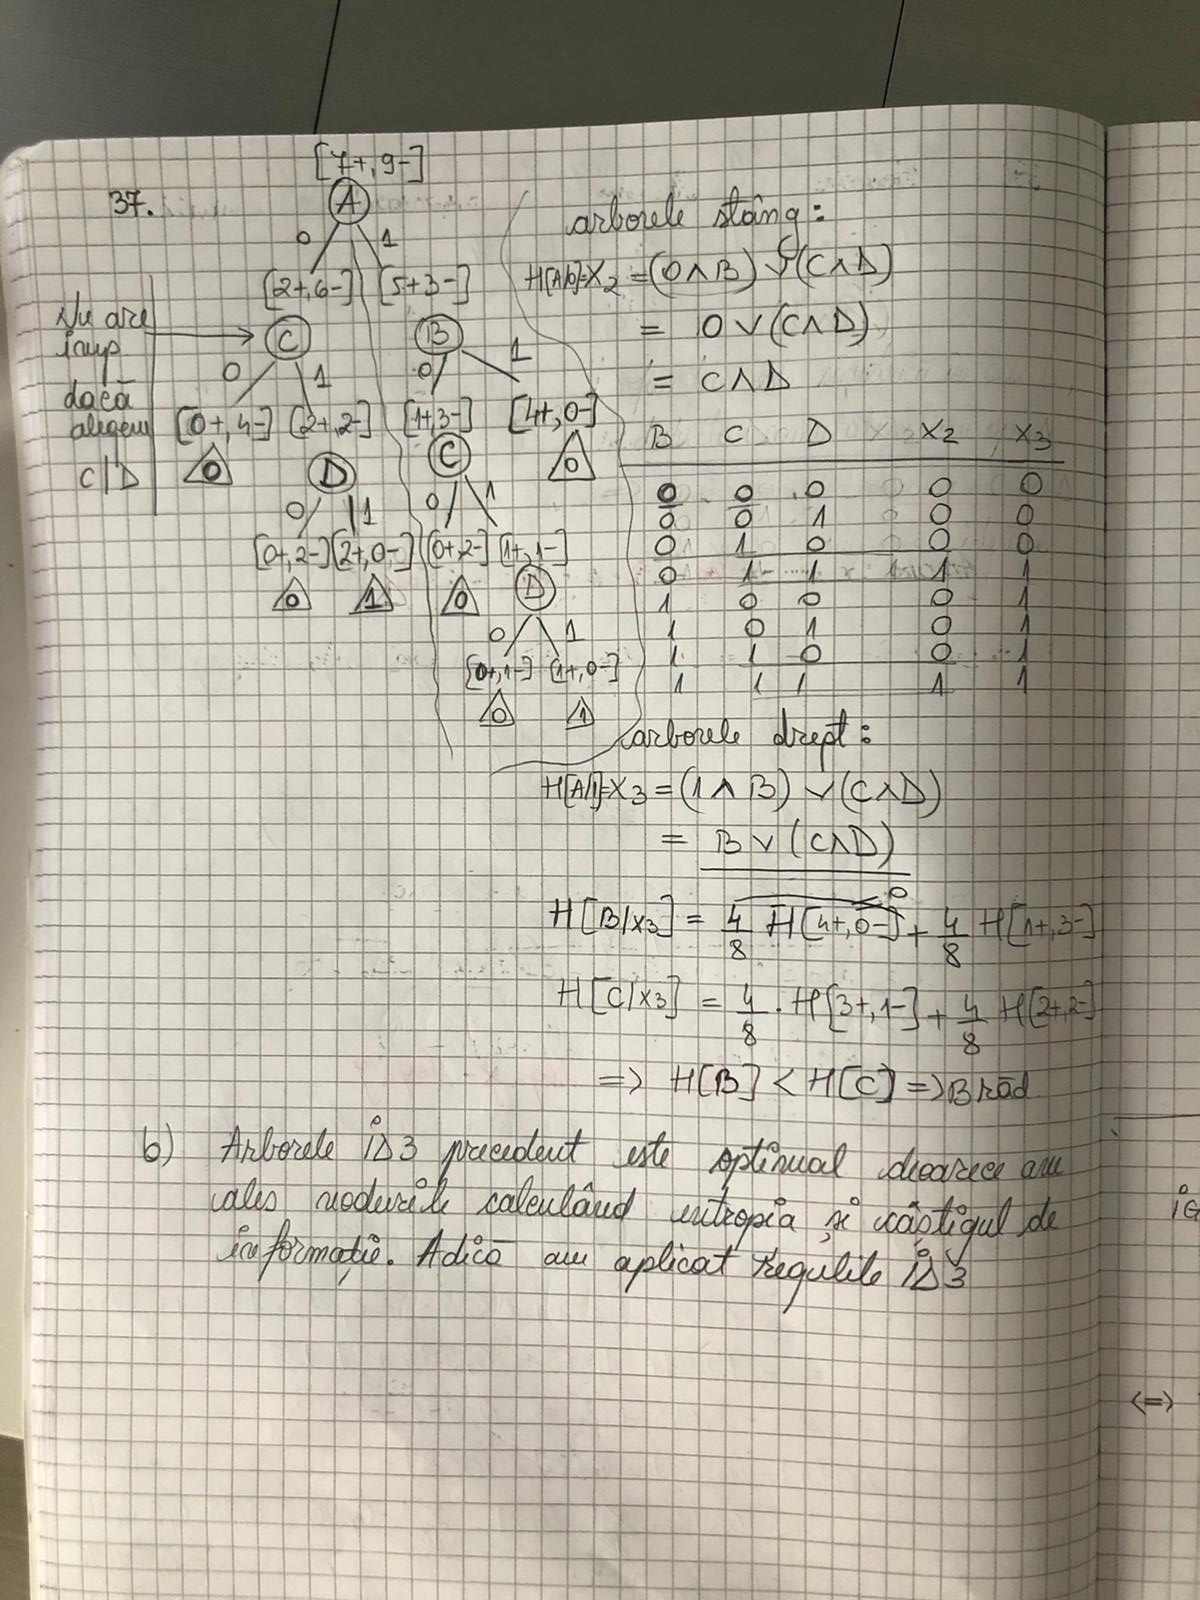 37.
[7+, 9-]
A
0 1
[2+, 6-] [5+ 3-]
Nu are
imp.
dacă
alegem
C/D
C B
0 1 0 1
[0+, 4-] [2+, 2-] [1+, 3-] [4+, 0-]
0 D C 0
0 1 0 1
[0+, 2-] [2+, 0-] [0+, 2-] [1+, 1-]
0 1 0 D
0 1
[0+, 1-] [1+, 0-]
0 1
arborele stâng:
H[A/0]=X2 = (0 ∧ B) ∨ (C ∧ D)
= 0 ∨ (C ∧ D)
= C ∧ D
B C D X2 X3
0 0 0 0 0
0 0 1 0 0
0 1 0 0 0
0 1 1 1 1
1 0 0 0 1
1 0 1 0 1
1 1 0 0 1
1 1 1 1 1
arborele drept:
H[A/1]=X3 = (1 ∧ B) ∨ (C ∧ D)
= B ∨ (C ∧ D)
= 0
H[B/X3] = 4/8 H[4+, 0-] + 4/8 H[1+, 3-]
H[C/X3] = 4/8 · H[3+, 1-] + 4/8 H[2+, 2-]
=> H[B] < H[C] => B răd
b) Arborele ID3 precedent este optimal deoarece am
ales nodurile calculând entropia și câștigul de
informație. Adică am aplicat regulile ID3
iG
<=>